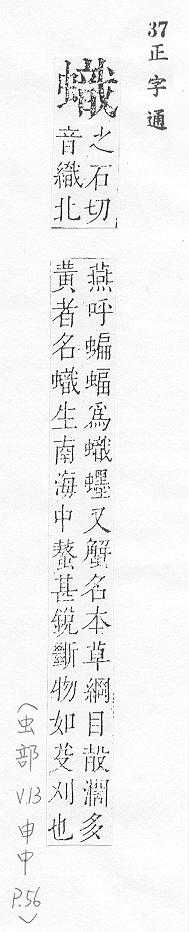 37正字通
蟙
之石切
音織北
燕呼蝙蝠為蟙䘃又蟹名本草綱目殼濶多
黃者名蟙生南海中螯甚銳斷物如芟刈也
(虫部 V.13 申中 P.56)